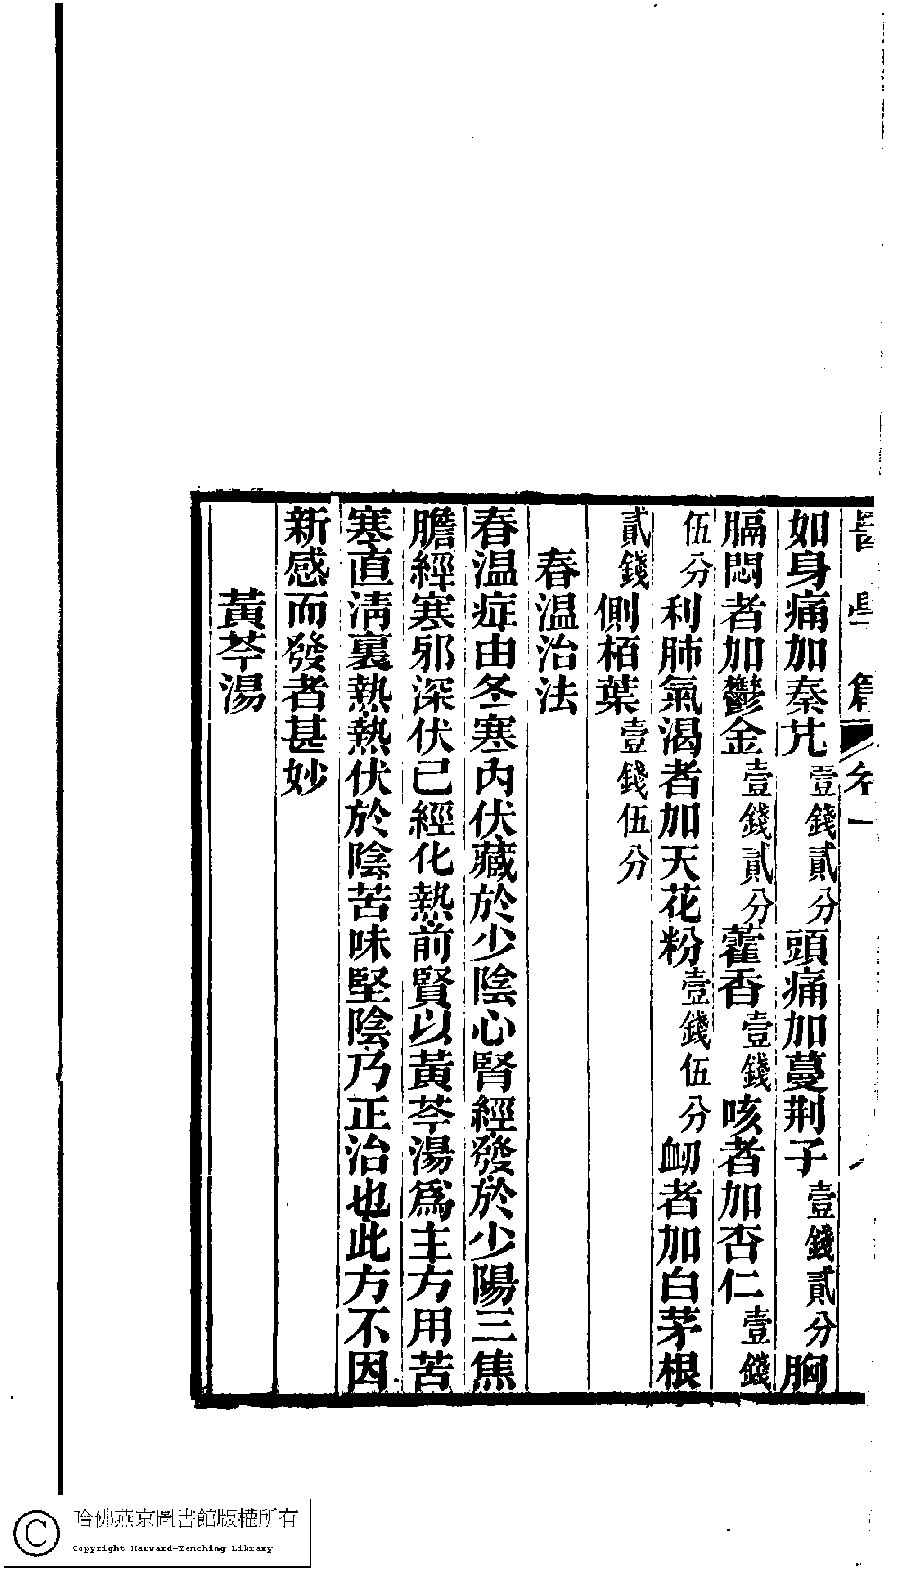 醫學篇 卷一
如身痛加秦艽壹錢貳分頭痛加蔓荆子壹錢貳分胸
膈悶者加鬱金壹錢貳分藿香壹錢咳者加杏仁壹錢
伍分利肺氣渴者加天花粉壹錢伍分衂者加白茅根
貳錢側栢葉壹錢伍分
春温治法
春温症由冬寒内伏藏於少陰心腎經發於少陽三焦
膽經寒邪深伏已經化熱前賢以黃芩湯爲主方用苦
寒直淸裏熱熱伏於陰苦味堅陰乃正治也此方不因
新感而發者甚妙
黃芩湯
哈佛燕京圖書館版權所有
Copyright Harvard-Yenching Library